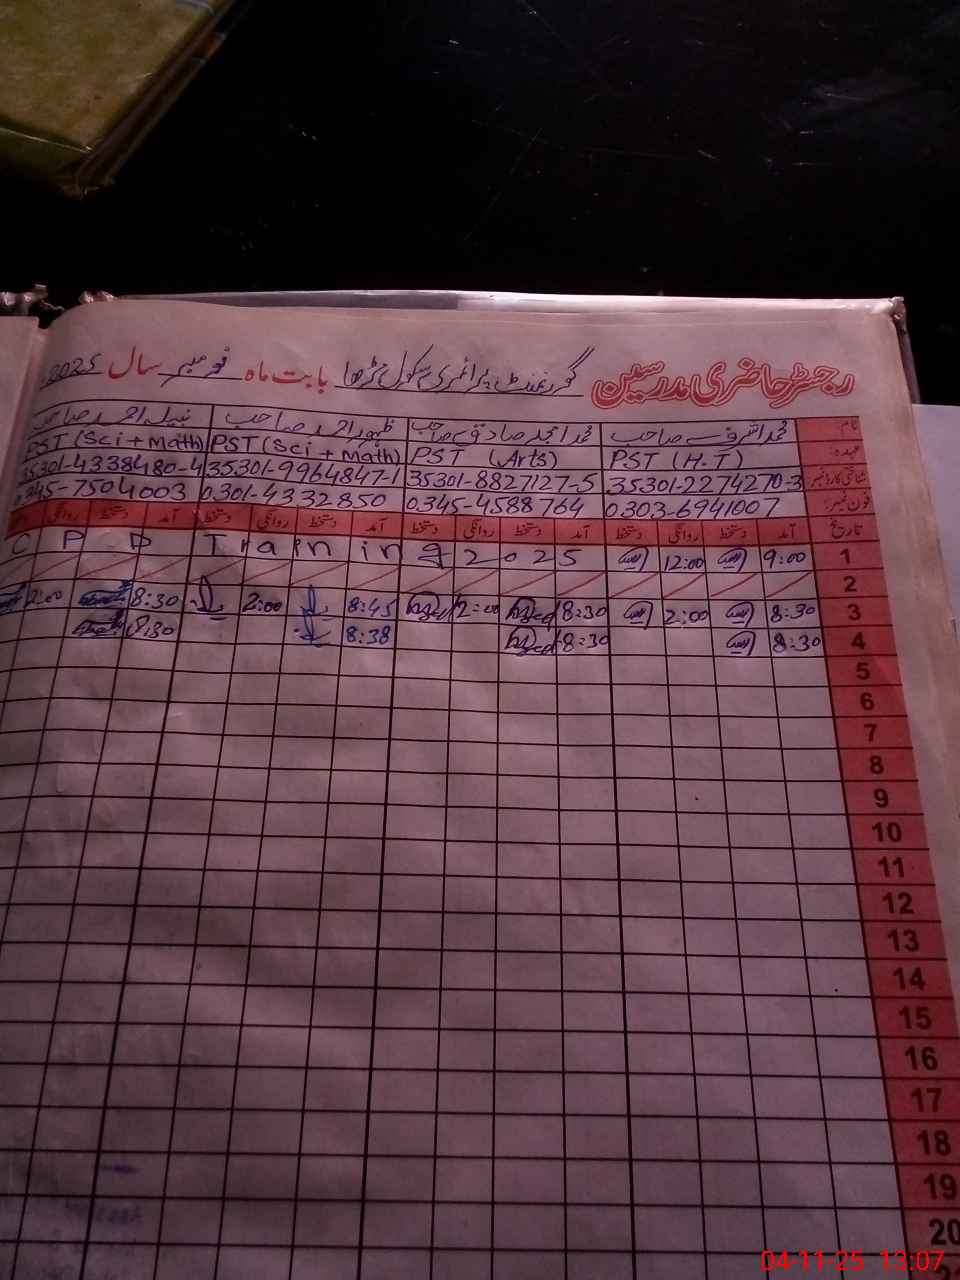 رجسٹر حاضری مدرسین گورنمنٹ پرائمری سکول بابت ماہ نومبر سال 2025
نام محمد اشرف صاحب محمد امجد صادق صاحب ظہور احمد صاحب نبیل احمد صاحب
عہدہ: PST (H-T) PST (Arts) PST (Sci + Math) PST (Sci + Math)
شناختی کارڈ نمبر 35301-2274270-3 35301-8827127-5 35301-9964847-1 35301-4338480-4
فون نمبر: 0303-6941007 0345-4588764 0301-4332850 0345-7504003
تاریخ آمد دستخط روانگی دستخط آمد دستخط روانگی دستخط آمد دستخط روانگی دستخط آمد دستخط روانگی
1 9:00 12:00 C P D Training 2025
2
3 8:30 2:00 8:30 2:00 8:45 2:00 8:30 2:00
4 8:30 8:30 8:38 8:30
5
6
7
8
9
10
11
12
13
14
15
16
17
18
19
20
04-11-25 13:07